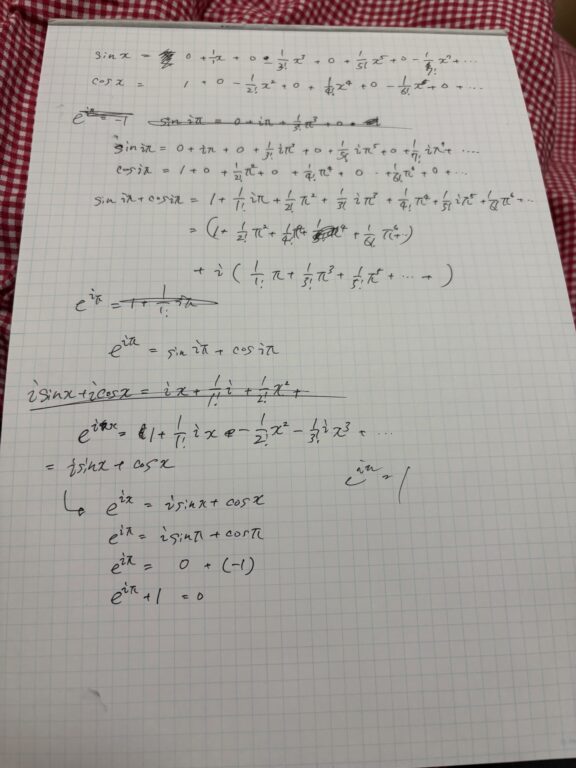 sin x = 0 + 1/1! x + 0 - 1/3! x³ + 0 + 1/5! x⁵ + 0 - 1/7! x⁷ + ...
cos x = 1 + 0 - 1/2! x² + 0 + 1/4! x⁴ + 0 - 1/6! x⁶ + 0 + ...
e^{iπ} = -1 sin iπ = 0 + iπ + 1/3! π³ + 0
sin iπ = 0 + iπ + 0 + 1/3! iπ³ + 0 + 1/5! iπ⁵ + 0 + 1/7! iπ⁷ + ...
cos iπ = 1 + 0 + 1/2! π² + 0 + 1/4! π⁴ + 0 + 1/6! π⁶ + 0 + ...
sin iπ + cos iπ = 1 + 1/1! iπ + 1/2! π² + 1/3! iπ³ + 1/4! π⁴ + 1/5! iπ⁵ + 1/6! π⁶ + ...
= (1 + 1/2! π² + 1/4! π⁴ + 1/6! π⁶ + )
+ i ( 1/1! π + 1/3! π³ + 1/5! π⁵ + ... + )
e^{iπ} = 1/(1 + 1/1! iπ
e^{iπ} = sin iπ + cos iπ
i sin x + i cos x = ix + 1/1! i + 1/2! x² +
e^{ix} = 1 + 1/1! ix - 1/2! x² - 1/3! i x³ + ...
= i sin x + cos x
↳ e^{ix} = i sin x + cos x
e^{iπ} = i sin π + cos π
e^{iπ} = 0 + (-1)
e^{iπ} + 1 = 0